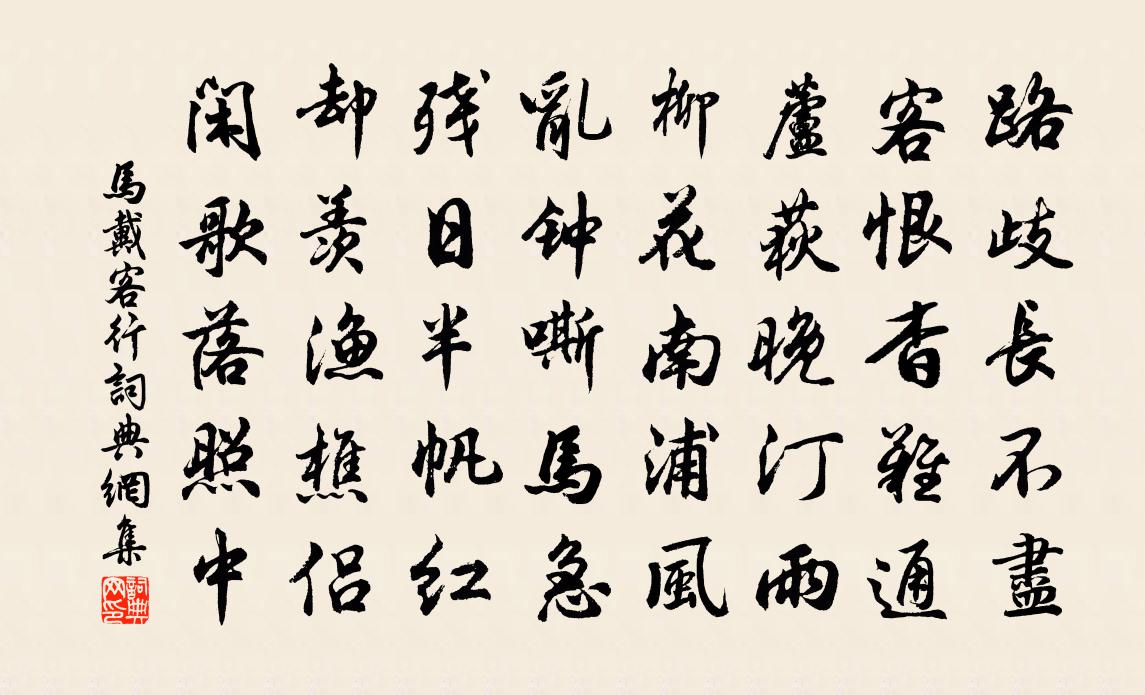 路歧長不盡
客恨杳難通
蘆荻晚汀雨
柳花南浦風
亂钟嘶馬急
残日半帆红
却羡渔樵侣
闲歌落照中
馬戴客行詞典網集
詞典网印